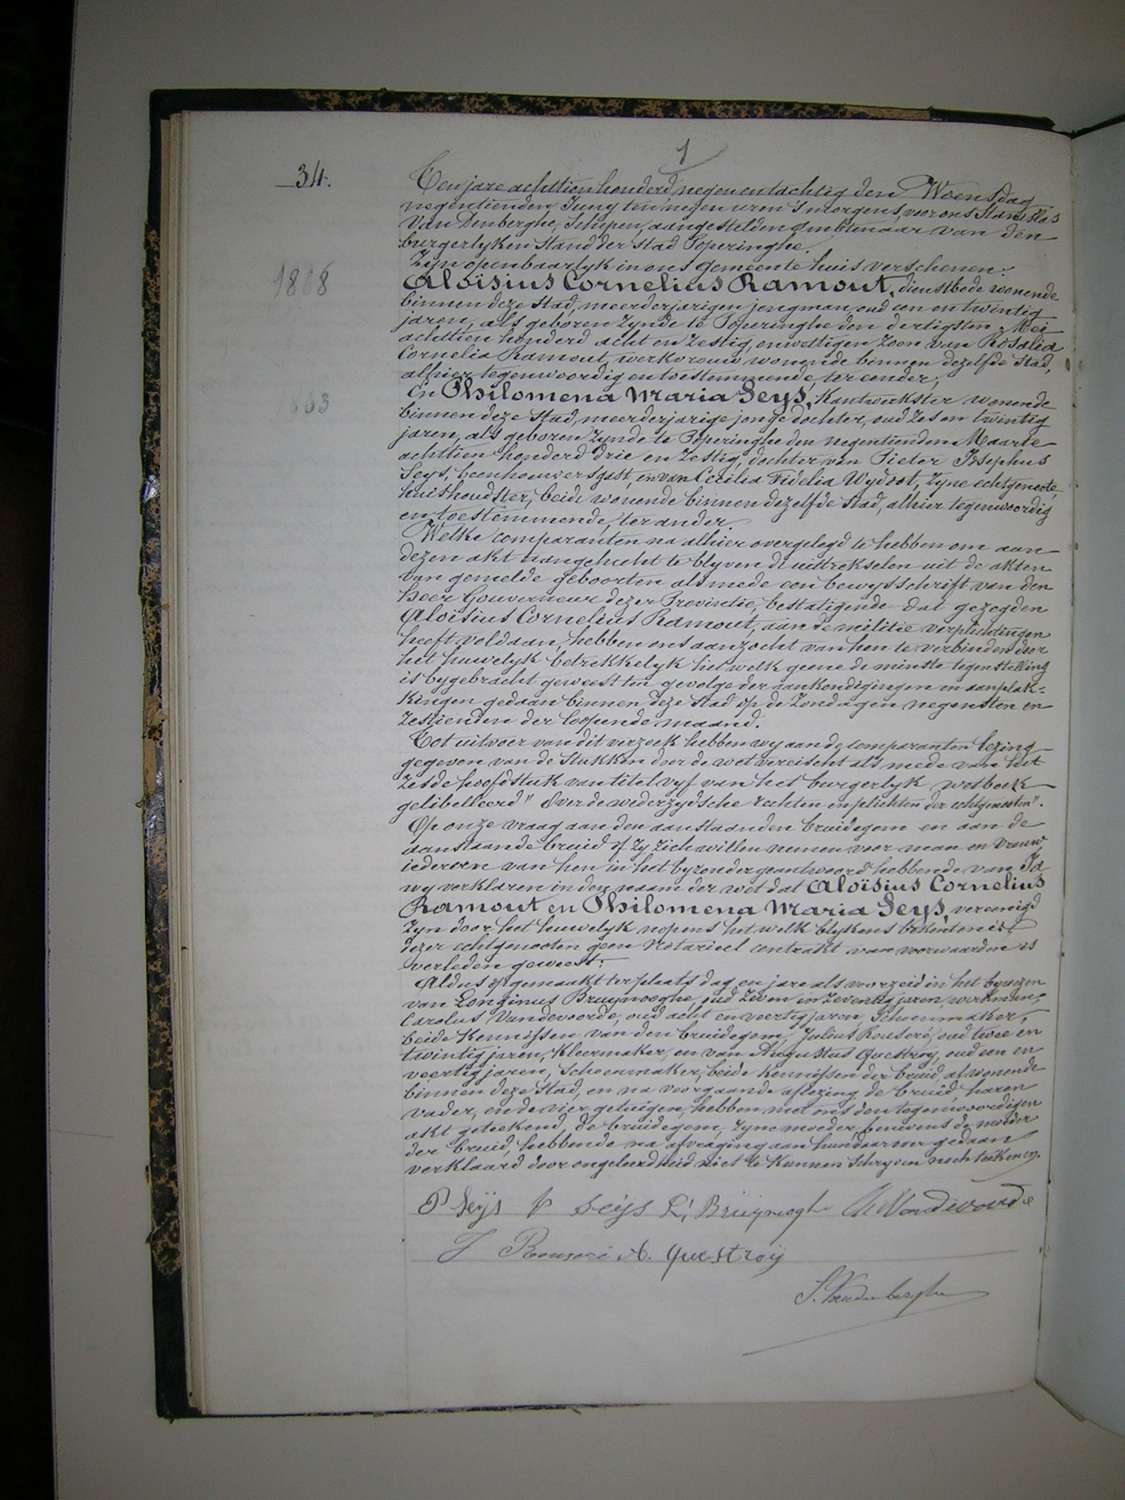 1
34.
Ten jare achttien honderd negen en tachtig den Woensdag
negentienden Juny ten negen uren 's morgens, voor ons Stanislas
Van Denberghe, Schepen, aangestelden ambtenaar van den
burgerlyken Stand der stad Poperinghe.
Zyn openbaarlyk in ons gemeente huis verschenen:
1868
Aloïsius Cornelius Ramout, dienstbode wonende
binnen deze stad, meerderjarigen jongman, oud een en twintig
jaren, als geboren zynde te Poperinghe den dertigsten Mei
achttien honderd acht en zestig, onwettigen zoon van Rosalia
Cornelia Ramout, werkvrouw, wonende binnen dezelfde stad,
alhier tegenwoordig en toestemmende, ter eender;
1863
En Philomena Maria Seys, kantwerkster wonende
binnen deze stad, meerderjarige jonge dochter, oud zes en twintig
jaren, als geboren zynde te Poperinghe den negentienden Maarte
achttien honderd drie en zestig, dochter van Pieter Josephus
Seys, beenhouwersgast, en van Cecilia Fidelia Wydoot, zyne echtgenoote,
huishoudster, beide wonende binnen dezelfde stad, alhier tegenwoordig
en toestemmende, ter ander.
Welke comparanten na alhier overgelegd te hebben om aan
dezen akt aangehecht te blyven de uittrekselen uit de akten
van gemelde geboorten alsmede een bewysschrift van den
heer Gouverneur dezer Provincie, bestatigende dat gezegden
Aloïsius Cornelius Ramout, aan de militie verplichtingen
heeft voldaan, hebben ons aanzocht van hen te verbinden door
het huwelyk betrekkelyk het welk geene de minste tegenstelling
is bygebracht geweest ten gevolge der aankondigingen en aanplak-
kingen gedaan binnen deze stad op de zondagen negensten en
zestienden der loopende maand.
Tot uitvoer van dit verzoek hebben wy aan de comparanten lezing
gegeven van de stukken door de wet vereischt als mede van het
zesde hoofdstuk van titel vyf van het burgerlyk wetboek
gelibelleerd "Over de wederzydsche rechten en plichten der echtgenooten".
Op onze vraag aan den aanstaanden bruidegom en aan de
aanstaande bruid of zy zich willen nemen voor man en vrouw
iedereen van hen in het byzonder geantwoord hebbende van Ja
wy verklaren in den naam der wet dat Aloïsius Cornelius
Ramout en Philomena Maria Seys, vereenigd
zyn door het huwelyk nopens het welk blykens bekenten is
dezer echtgenooten geen Notarieel contrakt van voorwaarden is
verleden geweest.
Aldus opgemaakt ter plaats dag en jare als voorzeid in het bywezen
van Longinus Bruynooghe, oud zeven en zeventig jaren, werkman,
Carolus Vandevoorde, oud acht en veertig jaren, Schoenmaker,
beide kennissen van den bruidegom, Julius Rouseré, oud twee en
twintig jaren, Kleermaker, en van Augustus Questroy, oud een en
veertig jaren, Schoenmaker, beide kennissen der bruid, al wonende
binnen deze stad, en na voorgaande aflezing de bruid, haren
vader, en de vier getuigen, hebben met ons den tegenwoordigen
akt geteekend, de bruidegom, zyne moeder, benevens de moeder
der bruid, hebbende na afvraging aan hun daarover gedaan
verklaard door ongeleerdheid niet te kunnen schryven noch teekenen.
P Seys P Seys L, Bruynoogh C Vandevoorde
J Rouseré A. Questroy
S. Vandenberghe